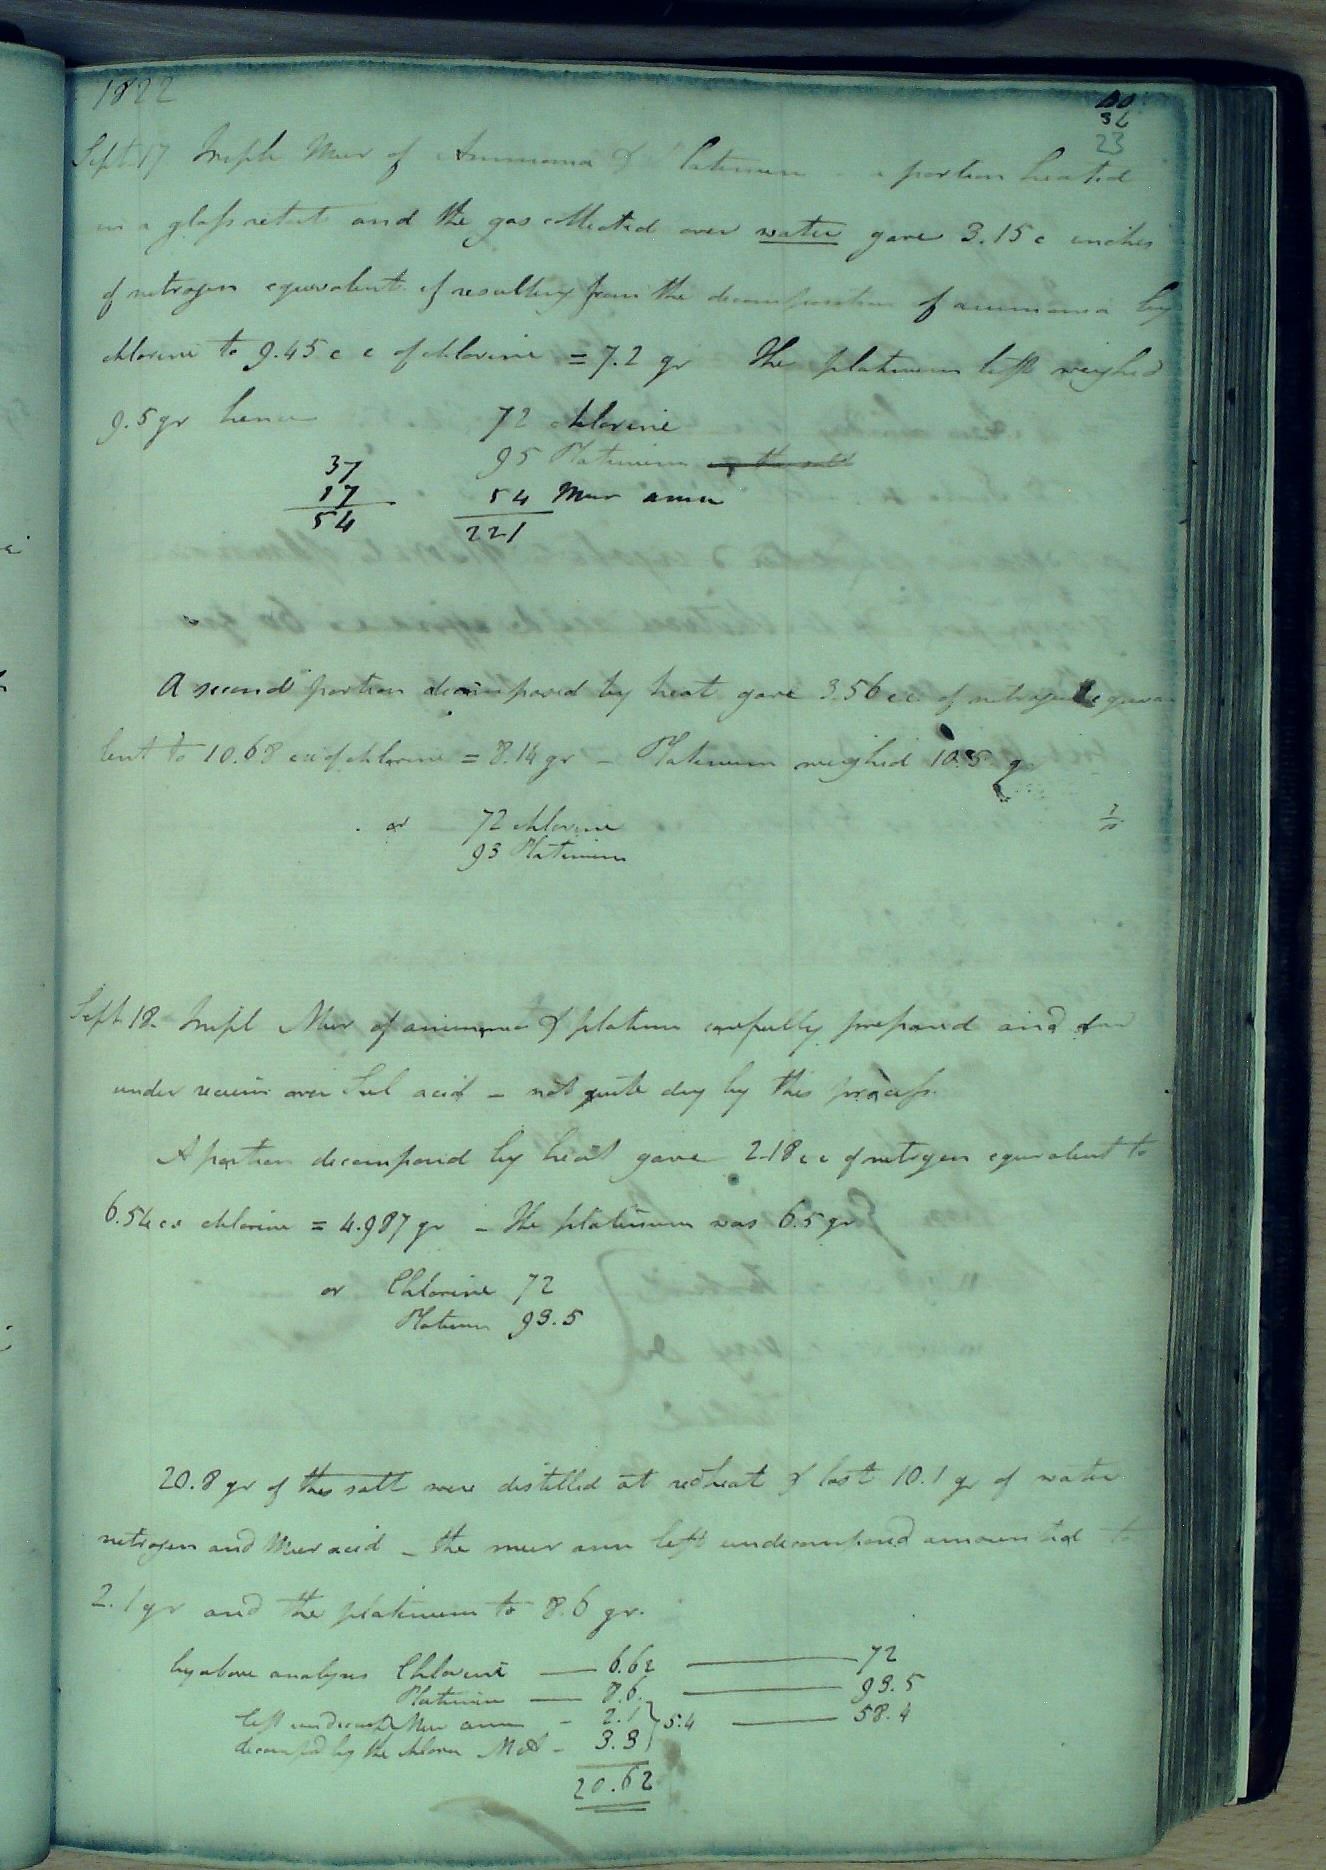 1822
32
23
Sept 17 Triple Mur of Ammonia & Platinum - a portion heated
in a glass retort and the gas collected over water gave 3.15 c inches
of nitrogen equivalent if resulting from the decomposition of ammonia by
chlorine to 9.45 c c of chlorine = 7.2 gr The platinum left weighed
9.5 gr hence 72 chlorine
37 95 Platinum
17 54 Mur amm
54 221
A second portion decomposed by heat gave 3.56 c c. of nitrogen equiva
lent to 10.68 c c of chlorine = 8.14 gr - Platinum weighed 10.5 gr
or 72 chlorine
93 Platinum
Sept 18. Tripl Mur of ammonia & platinum carefully prepared and
under receiver over Sul acid - not quite dry by this process.
A portion decomposed by heat gave 2.18 c c of nitrogen equivalent to
6.54 c c chlorine = 4.987 gr - The platinum was 6.5 gr
or Chlorine 72
Platinum 93.5
20.8 gr of this salt were distilled at red heat & lost 10.1 gr of water
nitrogen and Mur acid - the mur am left undecomposed amounted to
2.1 gr and the platinum to 8.6 gr.
by above analyses Chlorine — 6.62 — 72
Platinum — 8.6 — 93.5
left undecompd Mur amm - 2.1 } 5.4 — 58.4
decompd by the chlorine - 3.3
20.62